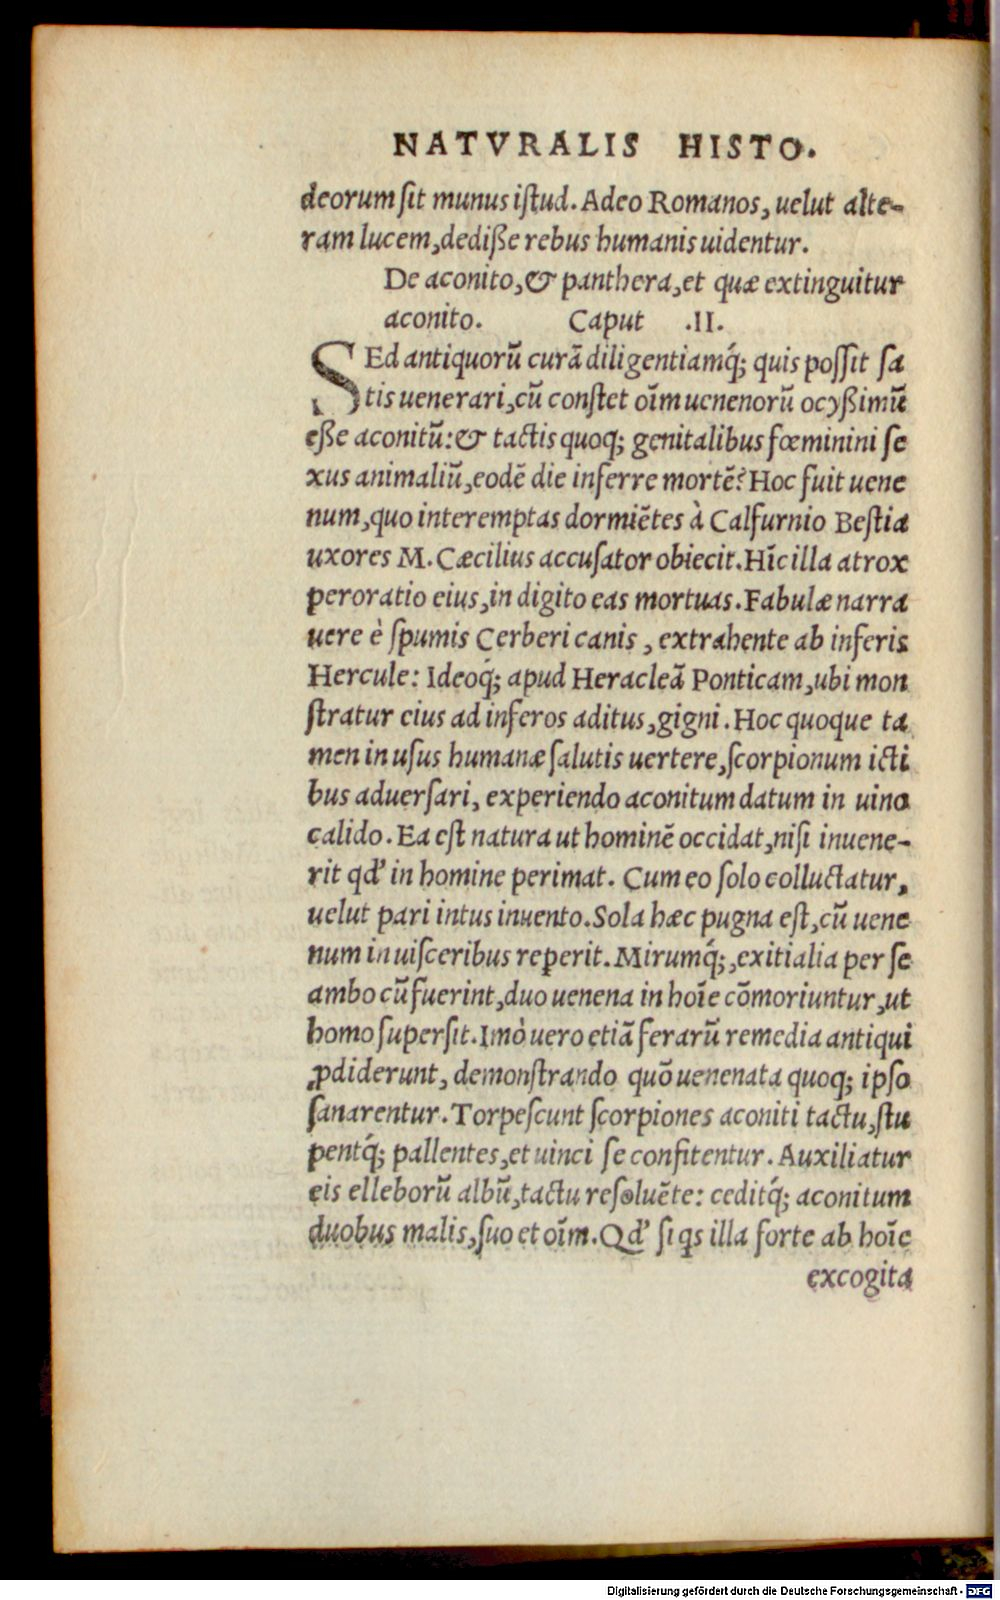 NATVRALIS HISTO.
deorum ſit munus iſtud. Adeo Romanos, uelut alte-
ram lucem, dediſſe rebus humanis uidentur.
De aconito, & panthera, et quæ extinguitur
aconito. Caput .II.
SEd antiquorū curā diligentiamq́; quis poſſit ſa
tis uenerari, cū conſtet oīm uenenorū ocyßimū
eße aconitū: & tactis quoq; genitalibus fœminini ſe
xus animaliū, eodē die inferre mortē? Hoc fuit uene
num, quo interemptas dormiētes à Calfurnio Beſtia
uxores M. Cæcilius accuſator obiecit. Hīc illa atrox
peroratio eius, in digito eas mortuas. Fabulæ narra
uere è ſpumis Cerberi canis, extrahente ab inferis
Hercule: Ideoq́; apud Heracleā Ponticam, ubi mon
ſtratur eius ad inferos aditus, gigni. Hoc quoque ta
men in uſus humanæ ſalutis uertere, ſcorpionum icti
bus aduerſari, experiendo aconitum datum in uino
calido. Ea eſt natura ut hominē occidat, niſi inuene-
rit qd' in homine perimat. Cum eo ſolo colluctatur,
uelut pari intus inuento. Sola hæc pugna eſt, cū uene
num in uiſceribus reperit. Mirumq́;, exitialia per ſe
ambo cū fuerint, duo uenena in hoīe cōmoriuntur, ut
homo ſuperſit. Imò uero etiā ferarū remedia antiqui
ꝓdiderunt, demonſtrando quō uenenata quoq; ipſo
ſanarentur. Torpeſcunt ſcorpiones aconiti tactu, ſtu
pentq́; pallentes, et uinci ſe confitentur. Auxiliatur
eis elleborū albū, tactu reſoluēte: ceditq́; aconitum
duobus malis, ſuo et oīm. Qd' ſi qs illa forte ab hoīe
excogita
Digitalisierung gefördert durch die Deutsche Forschungsgemeinschaft - DFG